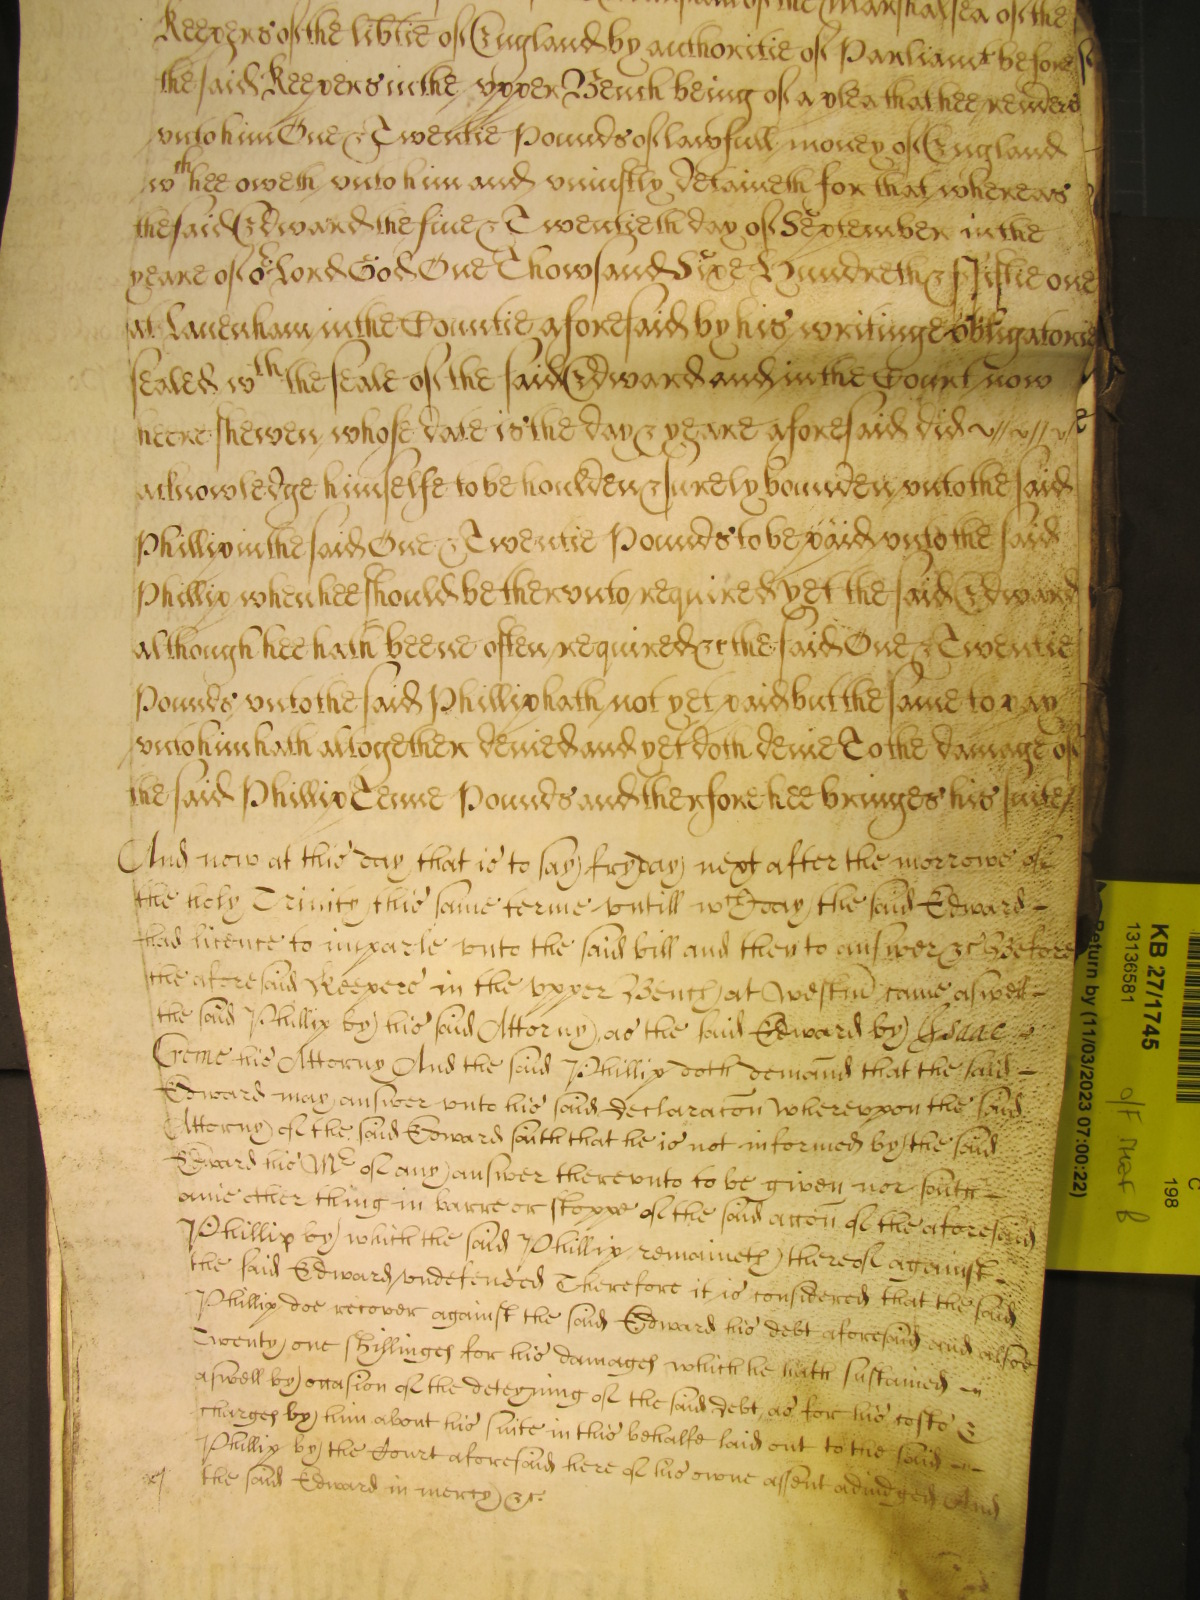 of the Marshalsea of the
Keepers of the lib'tie of England by authoritie of Parliamt before
the said Keepers in the vpper Bench being of a plea that hee render
vnto him One & Twentie Pounds of lawfull money of England
wth hee oweth vnto him and vniustly detaineth for that whereas
the said Edward the fiue & Twentieth day of September in the
yeare of or Lord God One Thowsand Sixe Hundreth & fiftie one
at Lauenham in the Countie aforesaid by his writinge obligatorie
sealed wth the seale of the said Edward and in the Court now
heere shewen whose date is the day & yeare aforesaid did
acknowledge himselfe to be houlden & surely bounden vnto the said
Phillip in the said One & Twentie Pounds to be paid vnto the said
Phillip when hee should be thervnto required yet the said Edward
although hee hath beene often required &c the said One & Twentie
Pounds vnto the said Phillip hath not yet paid but the same to pay
vnto him hath altogether denied and yet doth denie To the damage of
the said Phillip Tenne Pounds and therfore hee bringes his suite
And now at this day that is to say fryday next after the morrowe of
the holy Trinity this same terme vntill wch day the said Edward
had licence to imparle vnto the said bill and then to answer &c Before
the aforesaid Keepers in the vpper Bench at Westm' came aswell
the said Phillip by his said Attorny as the said Edward by Isaac
Creme his Attorny And the said Phillip doth demand that the said
Edward may answer vnto his said declaracon Wherevpon the said
Attorny of the said Edward saith that he is not informed by the said
Edward his Mr of any answer therevnto to be given nor saith
anie other thing in barre or stoppe of the said accon of the aforesaid
Phillip by which the said Phillip remaineth thereof against
the said Edward vndefended Therefore it is considered that the said
Phillip doe recover against the said Edward his debt aforesaid and alsoe
Twenty one shillinges for his damages which he hath sustained
aswell by occasion of the deteyning of the said debt as for his costs &
charges by him about his suite in this behalfe laid out to the said
Phillip by the Court aforesaid here of his owne assent adiudged And
the said Edward in mercy &c
KB 27/1745
13136581
Return by (11/03/2023 07:00:22)
C
198